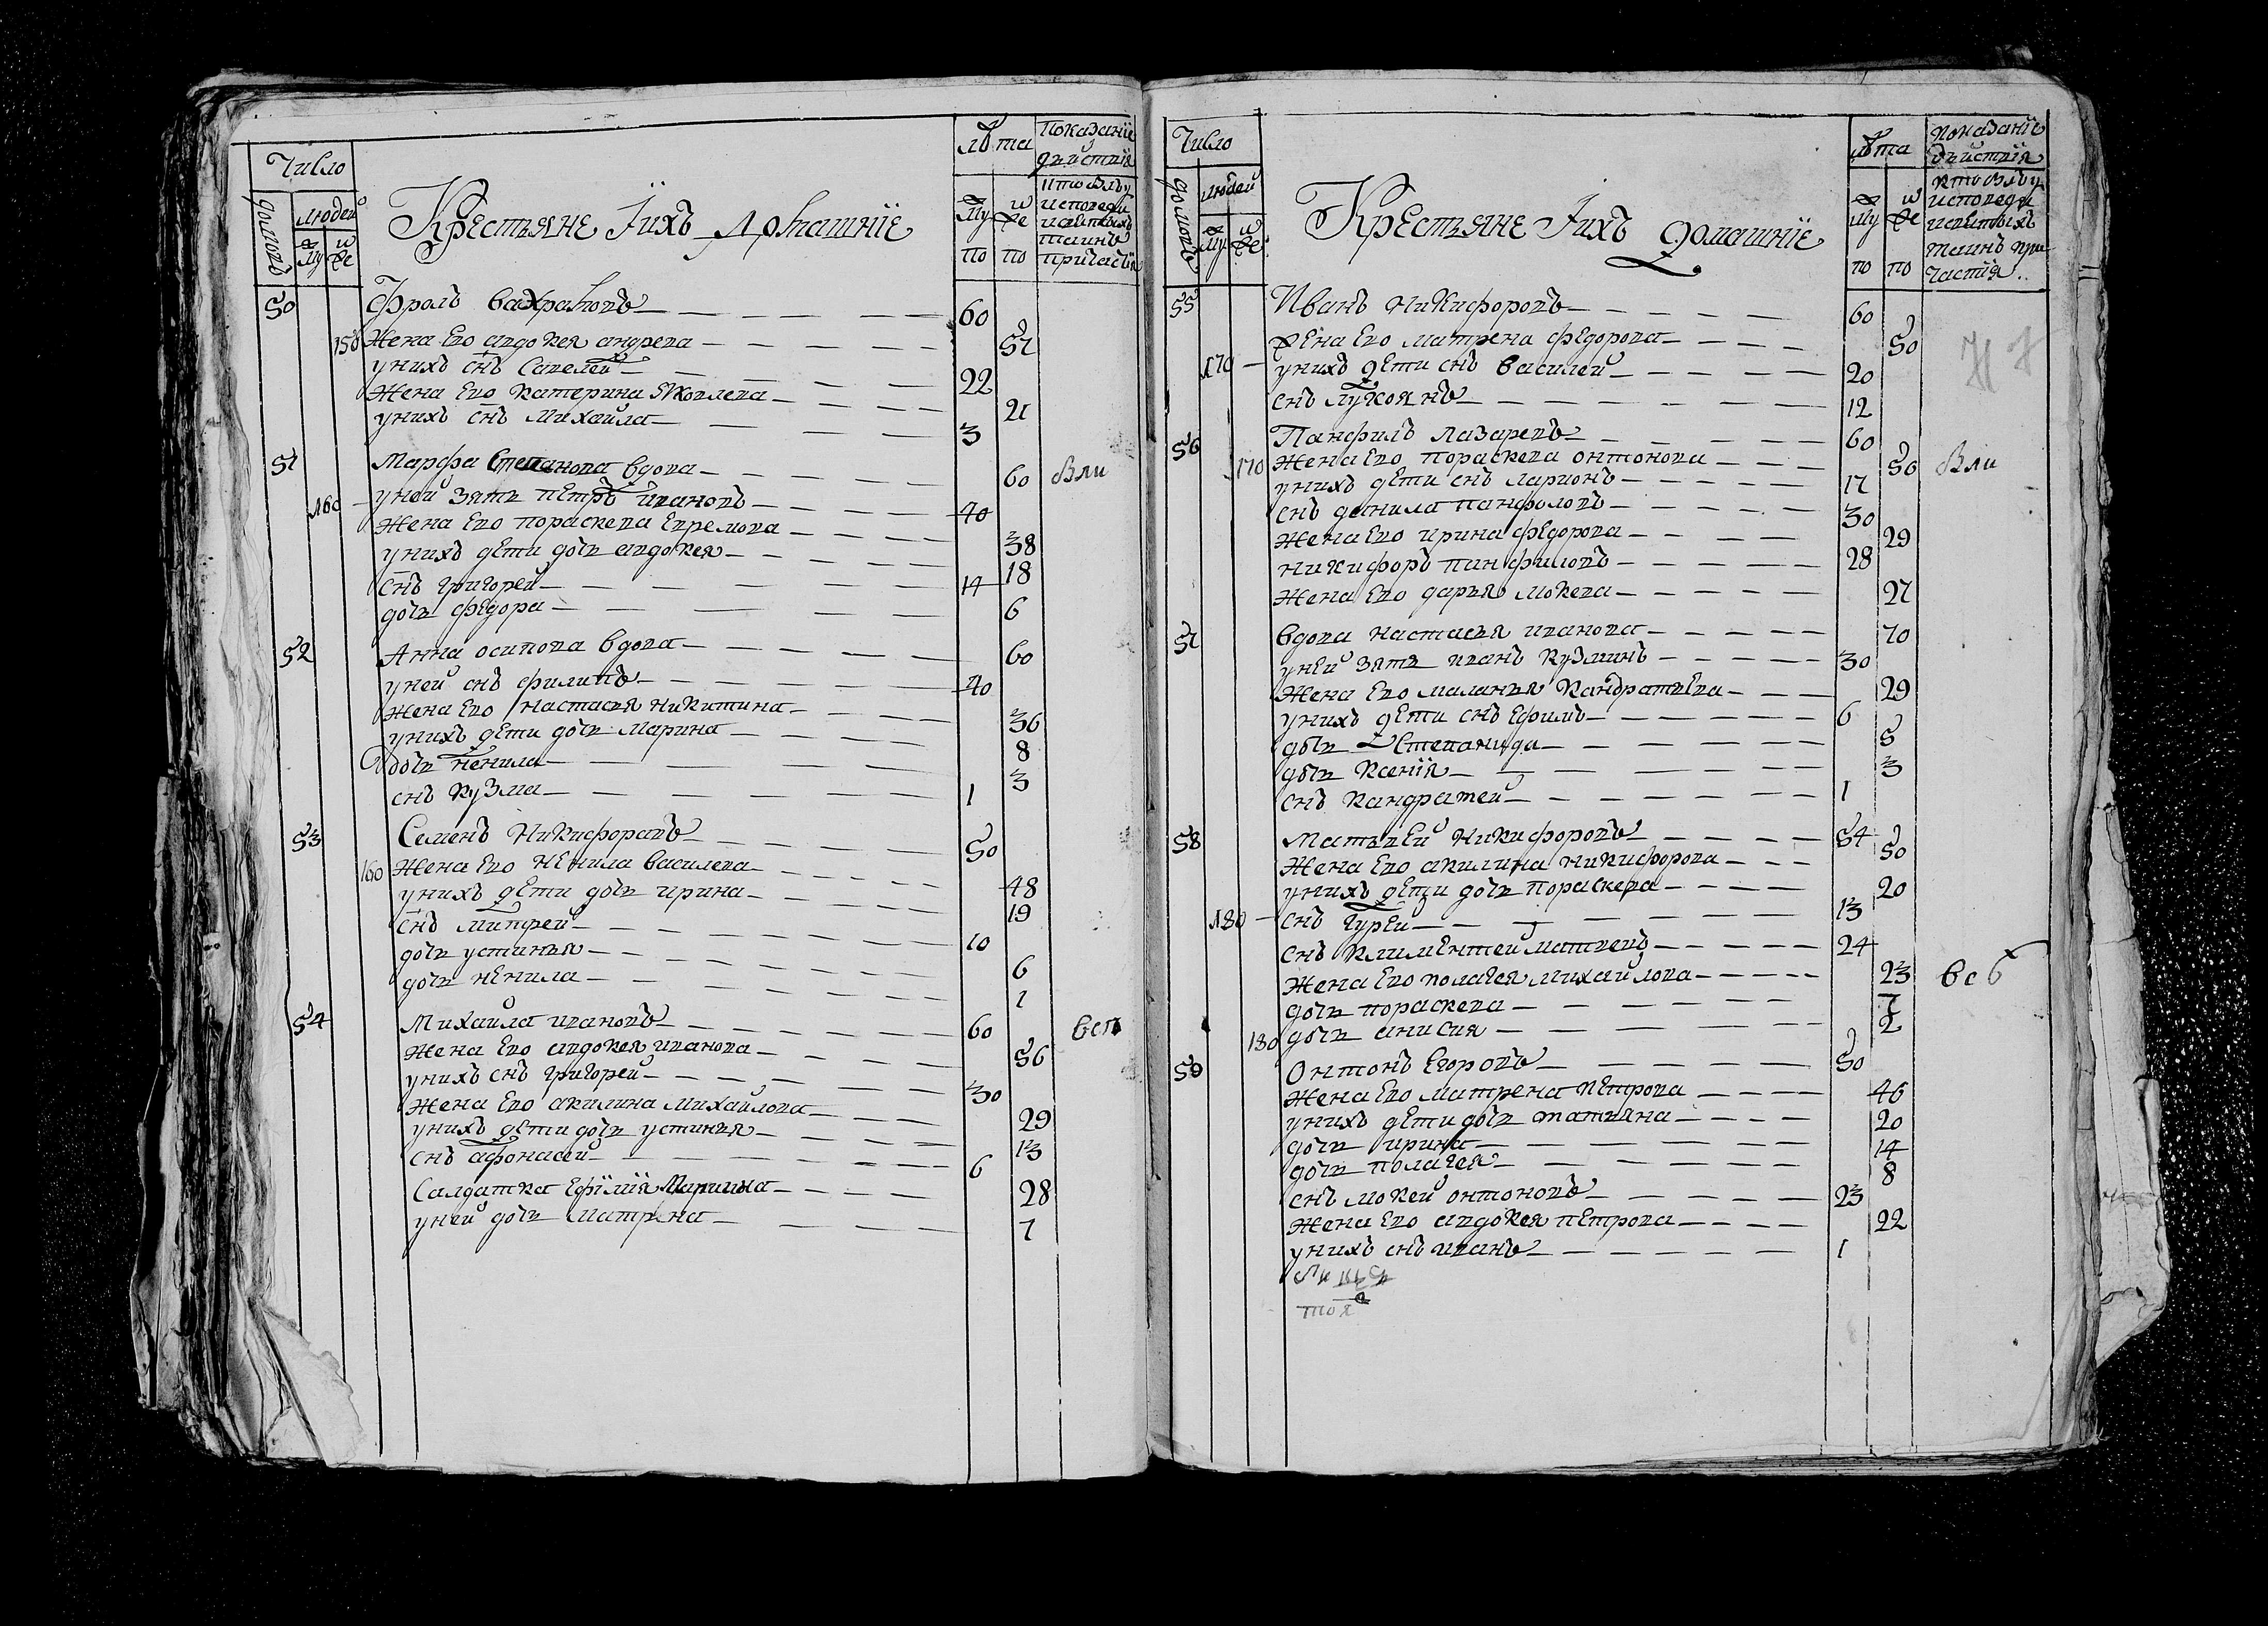 Число
домовъ
людей
муж
же
Крестьяне Іихъ домашніе
лѣта
муж
же
по
по
Показаніе
действія
кто былъ у
исповеди
и святыхъ
таинъ
причастія
50 Фролъ вахрамовъ 60
150 Жена Ево авдокея андрева 57
унихъ снъ Савелей 22
Жена Ево Катерина Яковлева 21
унихъ снъ Михаила 3
51 Марфа Степанова вдова 60 вли
160 уней зять петръ ивановъ 40
Жена Ево пораскева Ефремова 38
унихъ дети дочь авдокея 18
снъ григорей 14
дочь федора 6
52 Анна осипова вдова 60
уней снъ филипъ 40
Жена Ево настасея никитина 36
унихъ дети дочь марина 8
дочь ненила 3
снъ кузма 1
53 Семенъ Никифоравъ 50
160 Жена Ево ненила василева 48
унихъ дети дочь ирина 19
снъ митрей 10
дочь устинья 6
дочь ненила 1
54 Михаила ивановъ 60
Жена Ево авдокея иванова 56
унихъ снъ григорей 30
Жена Ево акилина Михайлова 29
унихъ дети дочь устинья 13
снъ афонасей 6
Салдатка Ефимія 28
уней дочь матрена 7
Число
домовъ
людей
муж
же
Крестьяне Іихъ домашніе
лѣта
муж
же
по
по
показаніе
действія
кто былъ у
исповеди
и святыхъ
таинъ при
частія
55 Иванъ никифоровъ 60
Жена Ево матрена федорова 50
170 унихъ дети снъ василей 20
снъ лукоянъ 12
56 Панфилъ лазаревъ 60
170 Жена Ево пораскева онтонова 56 вли
унихъ дети снъ ларионъ 17
снъ данила панфиловъ 30
Жена Ево ирина федорова 29
никифоръ панфиловъ 28
Жена Ево дарья мокева 27
57 вдова настасья иванова 70
уней зять иванъ кузминъ 30
Жена Ево маланья Кандратьева 29
унихъ дети снъ Ефимъ 6
дочь Степанида 5
дочь Ксенія 3
снъ Кандратей 1
58 Матьвей Никифоровъ 54
Жена Ево акилина никифорова 50
унихъ дети дочь пораскева 20
180 снъ гурей 13
снъ климентей матвевъ 24
Жена Ево полагея михайлова 23 все
дочь пораскева 7
180 дочь анисия 2
59 Онтонъ Егоровъ 50
Жена Ево матрена петрова 46
унихъ дети дочь татьяна 20
дочь ирина 14
дочь полагея 8
снъ мокей онтоновъ 23
Жена Ево авдокея петрова 22
унихъ снъ иванъ 1